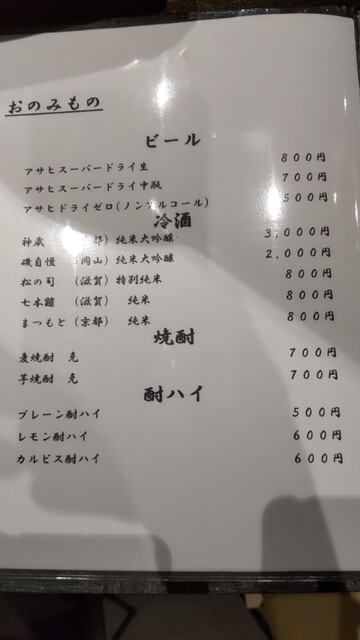 おのみもの
ビール
アサヒスーパードライ生 800円
アサヒスーパードライ中瓶 700円
アサヒドライゼロ(ノンアルコール) 500円
冷酒
神蔵 都) 純米大吟醸 3,000円
磯自慢 岡山) 純米大吟醸 2,000円
松の司 (滋賀) 特別純米 800円
七本鎗 (滋賀) 純米 800円
まつもと (京都) 純米 800円
焼酎
麦焼酎 克 700円
芋焼酎 克 700円
酎ハイ
プレーン酎ハイ 500円
レモン酎ハイ 600円
カルピス酎ハイ 600円